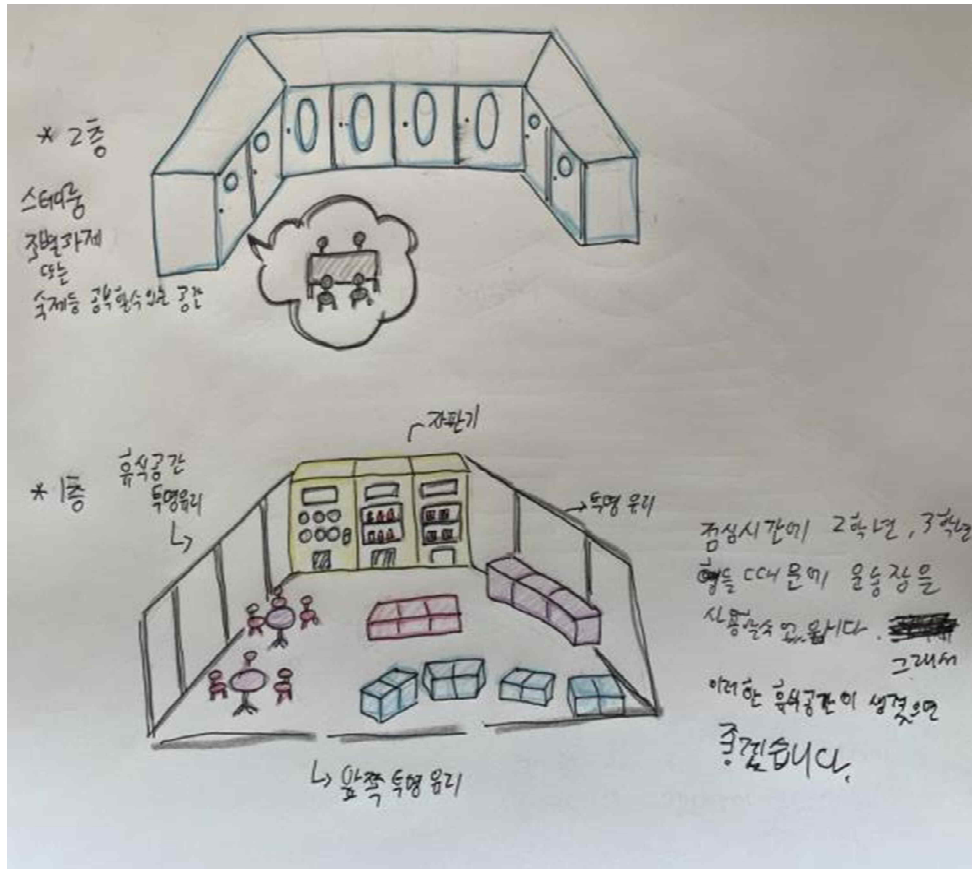 * 2층
스터디룸
조별과제
또는
숙제등 공부할수있는 공간
자판기
* 1층 휴식공간
투명유리
투명 유리
점심시간에 2학년, 3학년
형들 때문에 운동장을
사용할수 없습니다.
그래서
이러한 휴식공간이 생겼으면
좋겠습니다.
앞쪽 투명 유리